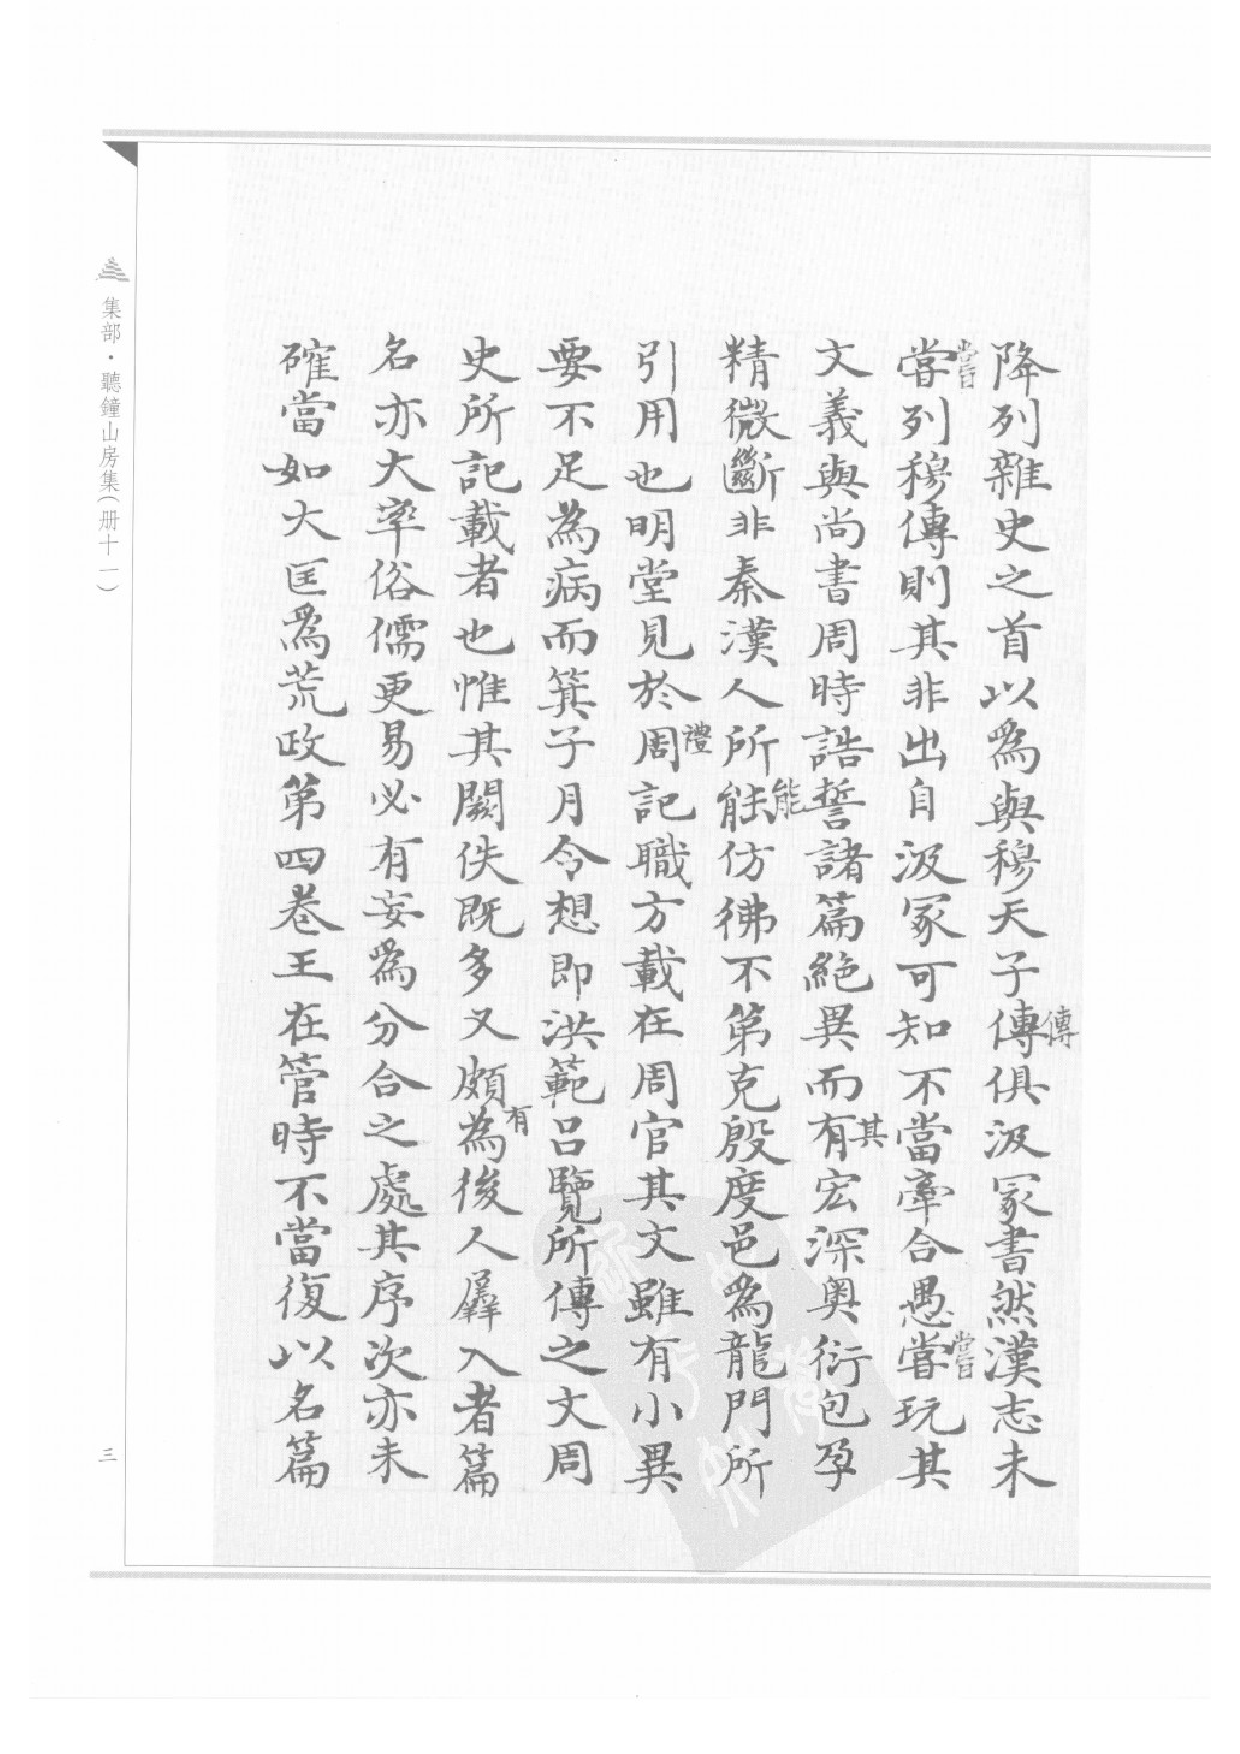 降列雜史之首以為與穆天子傳俱汲冢書然漢志未
傳
嘗列穆傳則其非出自汲冢可知不當牽合愚嘗玩其
嘗
嘗
文義與尚書周時誥誓諸篇絕異而有宏深奧衍包孕
其
精微斷非秦漢人所能仿彿不第克殷度邑為龍門所
能
引用也明堂見於周記職方載在周官其文雖有小異
禮
要不足為病而箕子月令想即洪範呂覽所傳之文周
史所記載者也惟其闕佚既多又頗為後人羼入者篇
有
名亦大率俗儒更易必有妄為分合之處其序次亦未
確當如大匡為荒政第四卷王在管時不當復以名篇
集部·聽鐘山房集(册十一)
三